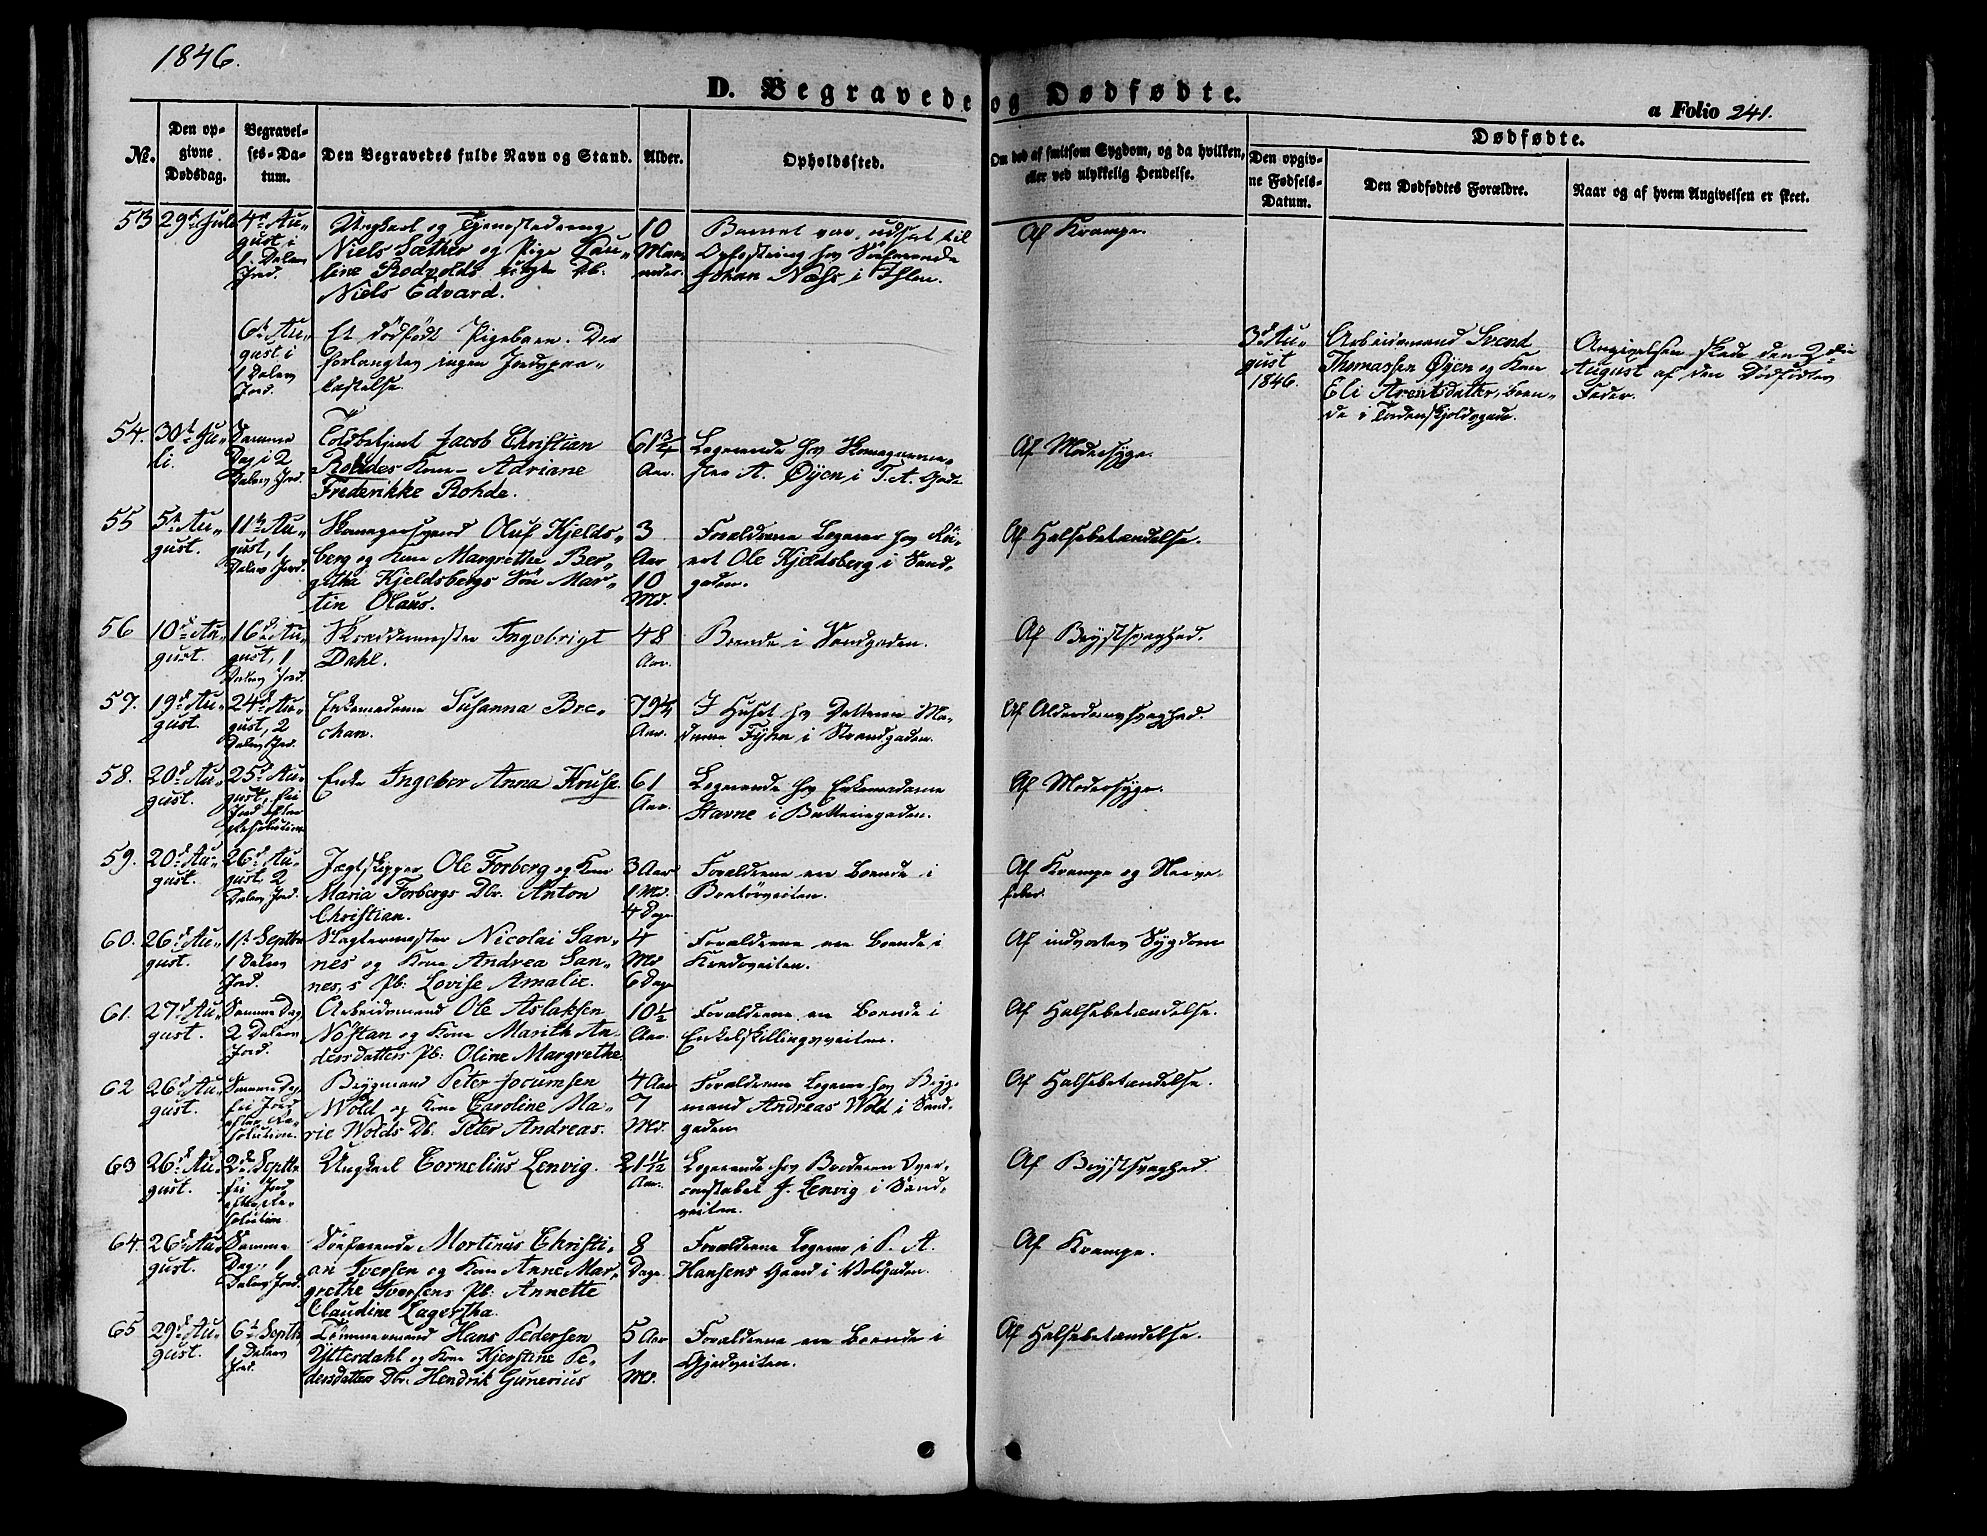 1846.
D. Begravede og Dødfødte.
a Folio 241.
No.
Den opgivne Dødsdag.
Begravelses-Datum.
Den Begravedes fulde Navn og Stand.
Alder.
Opholdssted.
Om død af smitsom Sygdom, og da hvilken, eller ved ulykkelig Hendelse.
Dødfødte.
Den opgivne Fødsels-Datum.
Den Dødfødtes Forældre.
Naar og af hvem Angivelsen er skeet.
53 29de Juli 4de Au-
gust i
1 Dalers
Jord.
Ungkarl og Tjenestedreng
Niels Sæther og Pige Pau-
line Rodvolds uægte Db.
Niels Edvard.
10
Maa-
neder.
Barnet var udsat til
Opfostring hos Søefarende
Johan Næss i Ihlen.
Af Krampe.
6te Au-
gust i
1 Dalers
Jord.
Et dødfødt Pigebarn. Der
forlangtes ingen Jordpaa-
kastelse.
3de Au-
gust
1846.
Arbeidsmand Svend
Thomassen Øyen og Kone
Eli Arentsdatter, boen-
de i Tordenskjoldsgade.
Angivelsen skede den
August af den Dødfødtes
Fader.
54. 30te Ju-
li.
Samme
Dag i 2
Dalers Jord.
Toldbetjent Jacob Christian
Rohdes Kone Adriane
Frederikke Rohde.
61 3/4
Aar.
Logerende hos Skomagerme-
ster A. Øyen i T. A. Gade
Af Modersyge.
55 5te Au-
gust.
11te Au-
gust, 1
Dalers Jord.
Skomagersvend Oluf Kjelds-
berg og Kone Margrethe Ber-
gethe Kjeldsbergs Søn Mar-
tin Olaus.
3
Aar
10
Md.
Forældrene Logerer hos
Ole Kjeldsberg i Sand-
gaden.
Af Halsebetændelse.
56 10de Au-
gust.
16de Au-
gust, 1
Dalers Jord.
Skræddermester Ingebrigt
Dahl.
48
Aar.
Boende i Sandgaden.
Af Brystsvaghed.
57. 19de Au-
gust.
24de Au-
gust, 2
Dalers Jord.
Enkemadame Susanna Bre-
chan.
79
Aar.
I Huset hos Datteren Ma-
dame i Strandgaden.
Af Alderdomssvaghed.
58. 20de Au-
gust.
25de Au-
gust, fri
Jord efter
Resolution
Enke Ingebor Anna Kruse.
61
Aar.
Logerende hos Enkemadame
Stavne i Batteriegaden.
Af Modersyge.
59. 20de Au-
gust.
26de Au-
gust, 2
Dalers Jord.
Jægtskipper Ole Forberg og Kone
Maria Forbergs Db. Anton
Christian.
3 Aar
1 Md.
4 Dage
Forældrene ere boende i
Bratørveiten.
Af Krampe og Nerve-
feber.
60. 26de Au-
gust.
1ste Septbr
1 Dalers
Jord.
Slagtermester Nicolai San-
nes og Kone Andrea San-
nes,s Pb: Lovise Amalie.
4
Md
6 Dage
Forældrene ere boende i
Af indvortes Sygdom
61. 27de Au-
gust.
Samme Dag
2 Dalers
Jord.
Arbeidsmand Ole Aslaksen
Nøstan og Kone Marith An-
dersdatters Pb: Oline Margrethe
10 1/2
Aar.
Forældrene ere boende i
Enkelskillingsveiten.
Af Halsebetændelse.
62 26de Au-
gust.
Samme Dag
fri Jord
efter Re-
solution.
Brygmand Peter Jocumsen
Wold og Kone Caroline Ma-
rie Wolds Db. Peter Andreas.
4 Aar
7
Md.
Forældrene Logerer hos Bryg-
mand Andreas Wold i Sand-
gaden
Af Halsebetændelse.
63 26de Au-
gust.
2den Septbr
fri Jord
efter Re-
solution
Ungkarl Cornelius Lenvig.
21 11/12
Aar.
Logerende hos Broderen Over-
constabel J. Lenvig i Sand-
veiten.
Af Brystsvaghed.
64. 26de Au-
gust.
Samme
Dag, 1
Dalers Jord.
Søefarende Mortinus Christi-
an Iversen og Kone Anne Mar-
grethe Iversens Pb: Annette
Claudine Lagertha.
8
Dage.
Forældrene Logerer i P. A.
Hansens Gaard i Voldgaden.
Af Krampe.
65 29de Au-
gust.
6te Septbr
1 Dalers
Jord.
Tømmermand Hans Pedersen
Ytterdahl og Kone Kjerstine Pe-
dersdatters Db. Hendrik Gunerius
5 Aar
1
Md.
Forældrene ere boende i
Gjedveiten.
Af Halsebetændelse.